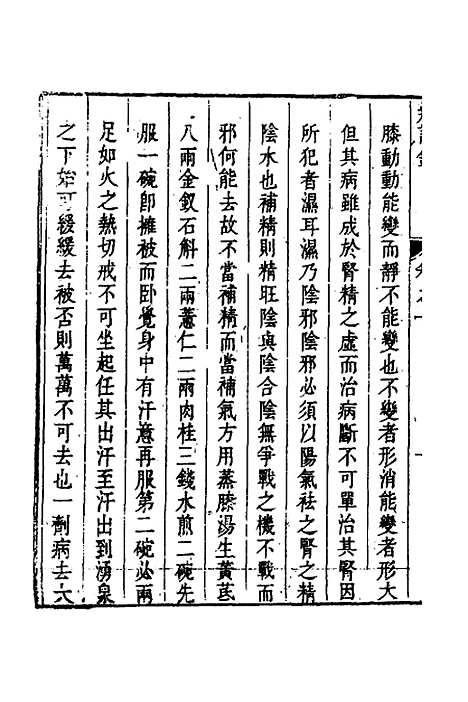 膝動動能變而靜不能變也不變者形消能變者形大
但其病雖成於腎精之虛而治病斷不可單治其腎因
所犯者濕耳濕乃陰邪陰邪必須以陽氣祛之腎之精
陰水也補精則精旺陰與陰合陰無爭戰之機不戰而
邪何能去故不當補精而當補氣方用蒸膝湯生黃芪
八兩金釵石斛二兩薏仁二兩肉桂三錢水煎二碗先
服一碗卽擁被而臥覺身中有汗意再服第二碗必兩
足如火之熱切戒不可坐起任其出汗至汗出到湧泉
之下始可緩緩去被否則萬萬不可去也一劑病去大